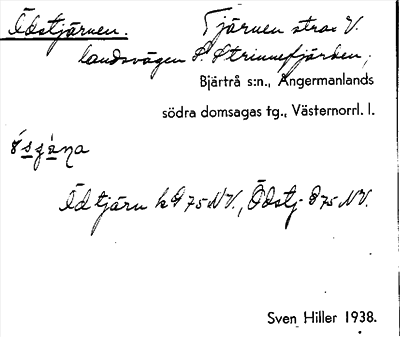 Ödstjärnen. Tjärnen strax V.
landsvägen S. Strinnefjärden;
Bjärtrå s:n., Ångermanlands
södra domsagas tg., Västernorrl. l.
Ödtjärn k 975 NV., Ödstj. 975 NV.
Sven Hiller 1938.